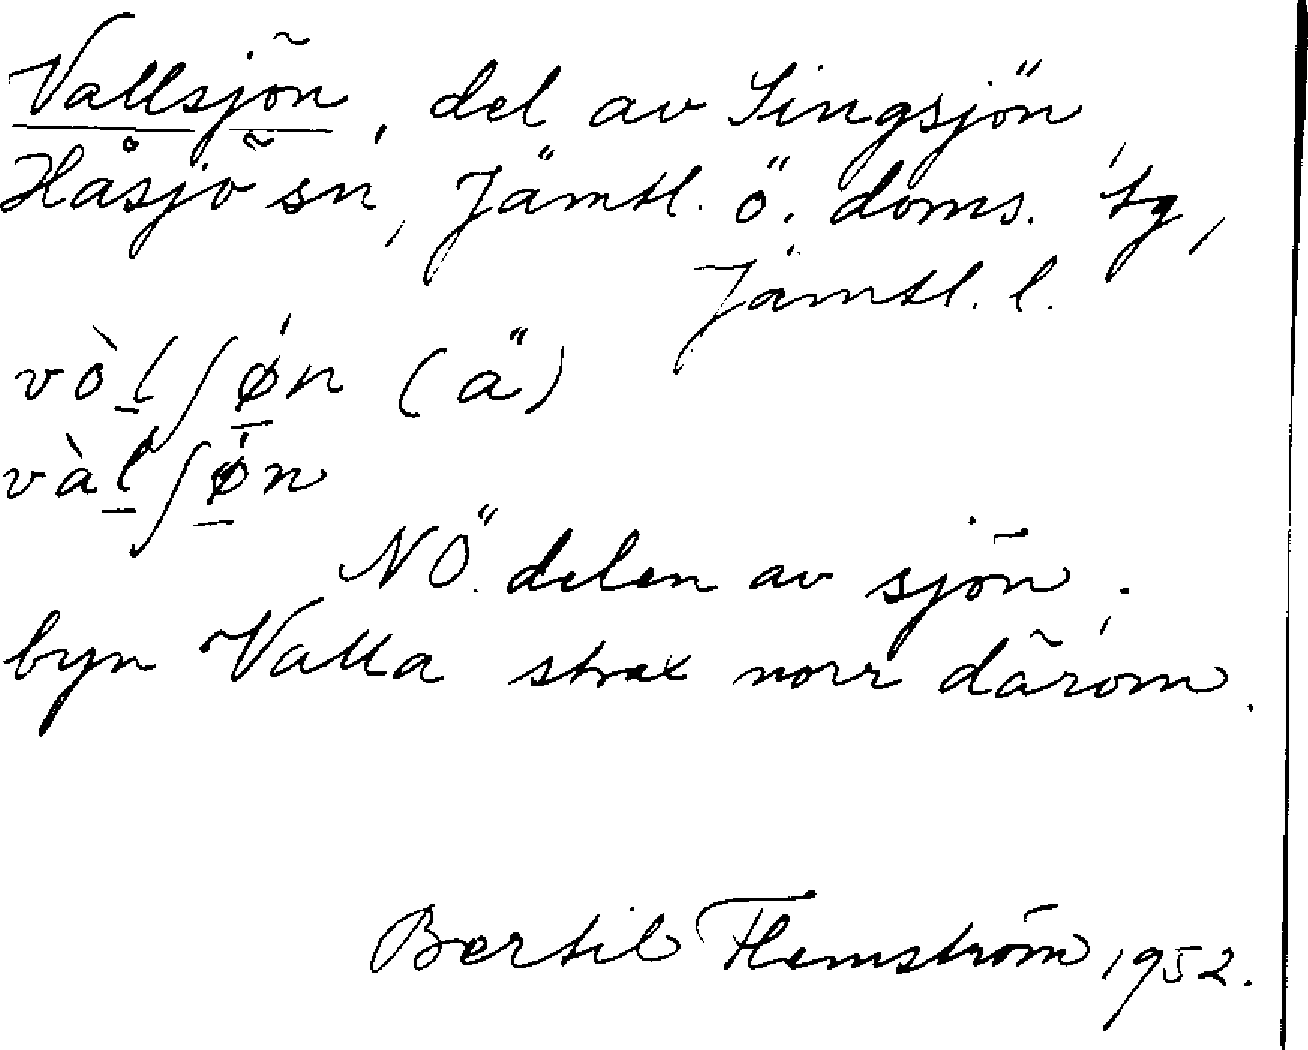 Vallsjön, del av Singsjön,
Håsjö sn, Jämtl. ö. doms. tg,
Jämtl. l.
vòl̠ʃø̠n (ä)
vàl̠ʃø̠n
NÖ. delen av sjön.
byn Valla strax norr därom.
Bertil Flemström 1952.